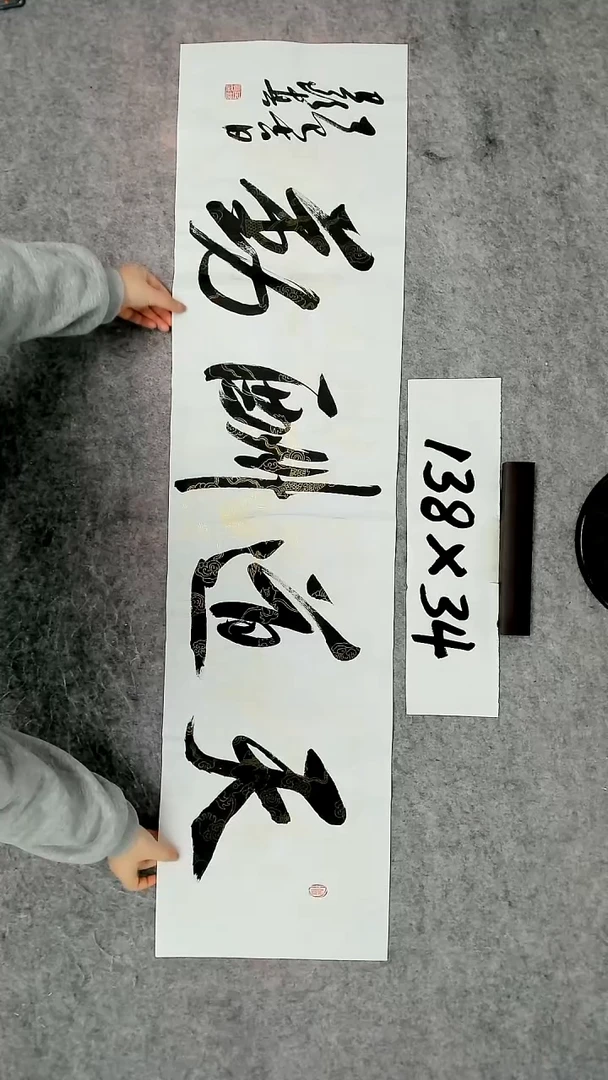 天道酬勤
138×34